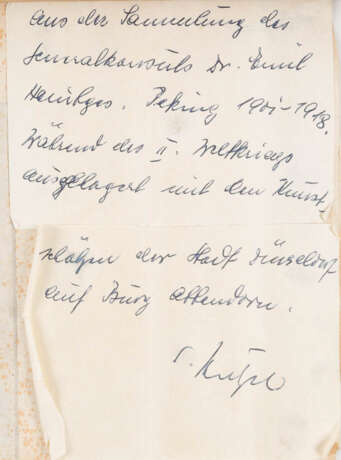 Aus der Sammlung des
Generalkonsuls Dr. Emil
Peking 1901-1918.
Während des II. Weltkriegs
ausgelagert mit den Kunst-
schätzen der Stadt Düsseldorf
auf Burg Attendorn.